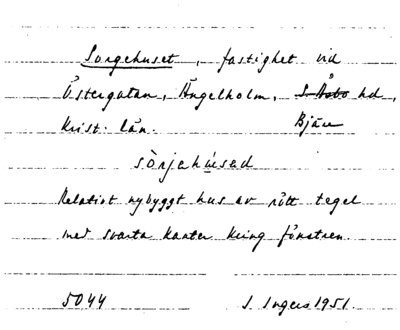 Sorgehuset, fastighet vid
Östergatan, Ängelholm, S Åsbo hd,
Krist. län. Bjäre
sörjehúsed
Relativt nybyggt hus av rött tegel
med svarta kanter kring fönstren.
5044 I. Ingers 1951.